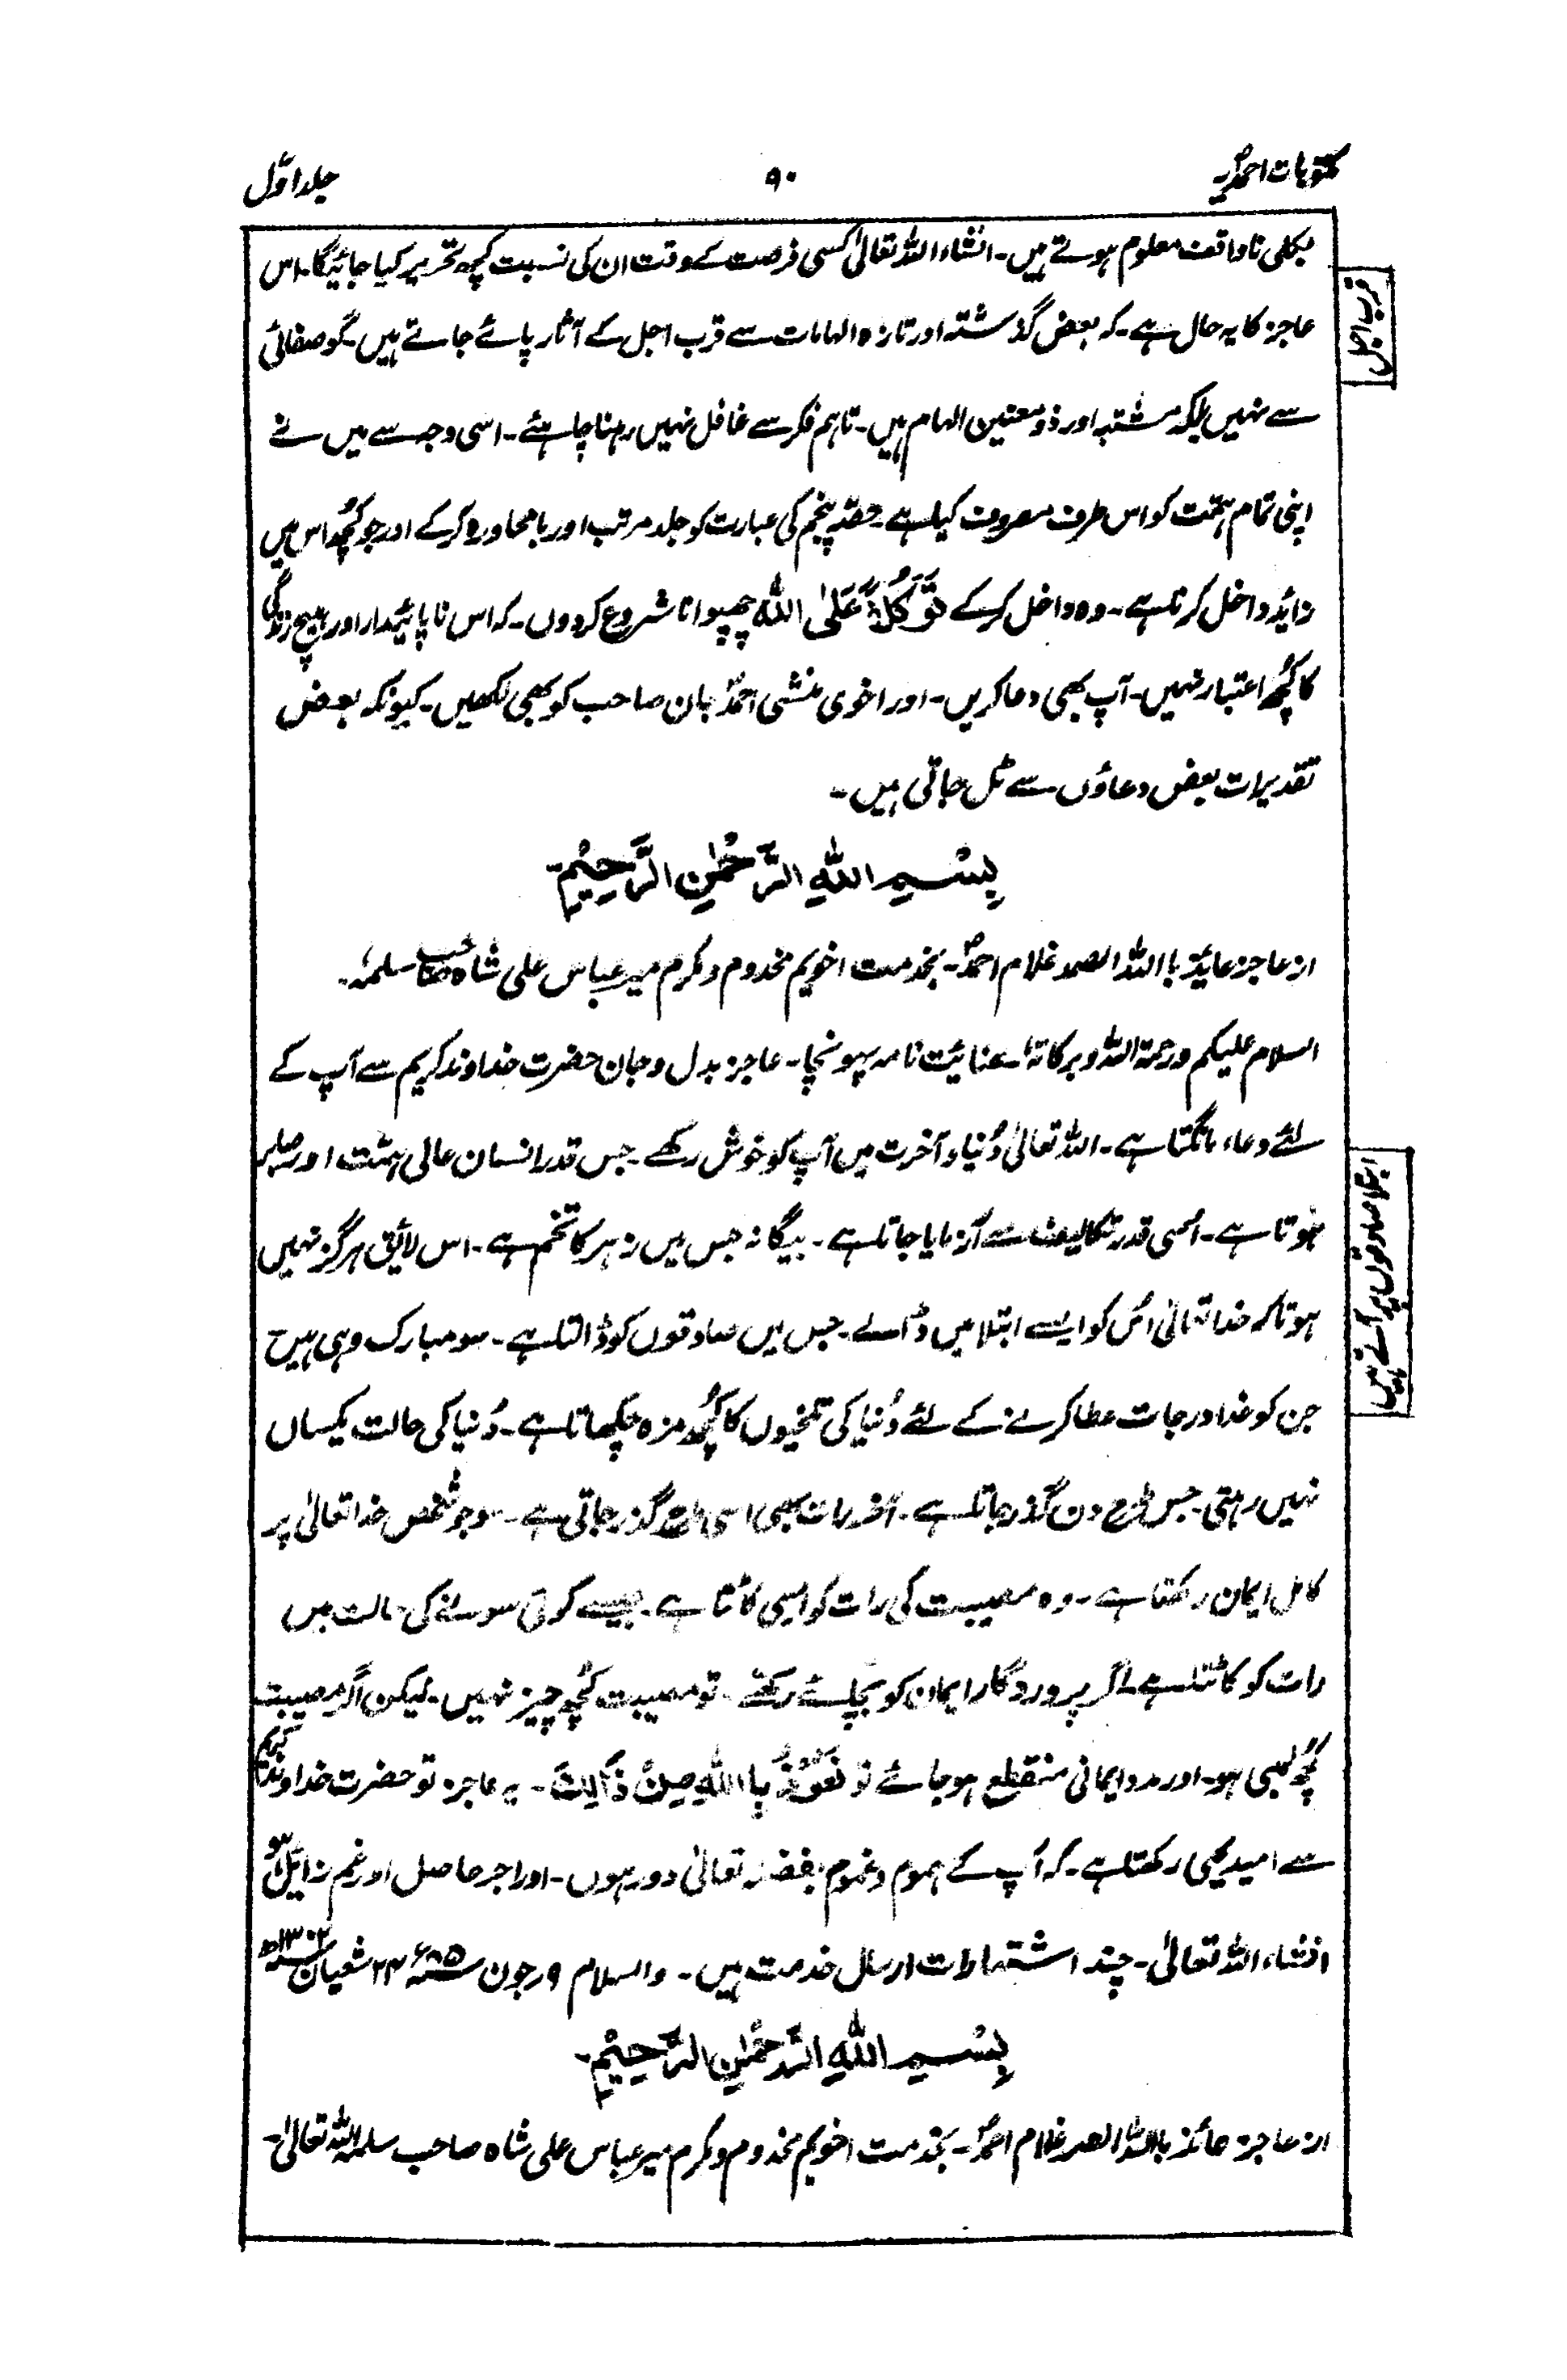 مکتوبات احمدیہ
۹۰
جلد اوّل
بکلی ناواقف معلوم ہوتے ہیں۔ انشاء اللہ تعالیٰ کسی فرصت کے وقت ان کی نسبت کچھ تحریر کیا جائیگا۔ اس
قرب اجل
عاجز کا یہ حال ہے۔ کہ بعض گذشتہ اور تازہ الہامات سے قرب اجل کے آثار پائے جاتے ہیں۔ گو صفائی
سے نہیں بلکہ مشتبہ اور ذومعنین الہام ہیں۔ تاہم فکر سے غافل نہیں رہنا چاہئے۔ اسی وجہ سے میں نے
اپنی تمام ہمّت کو اس طرف مصروف کیا ہے۔ حصّہ پنجم کی عبارت کو جلد مرتب اور بامحاورہ کرکے اور جو کُچھ اس میں
زاید داخل کرنا ہے۔ وہ داخل کرکے تَوَکُّلاً عَلَی اللہ چھپوانا شروع کر دوں۔ کہ اس ناپائیدار اور ہیچ زندگی
کا کُچھ اعتبار نہیں۔ آپ بھی دعا کریں۔ اور اخوی منشی احمدؐ جان صاحب کو بھی لکھیں۔ کیونکہ بعض
تقدیرات بعض دعاؤں سے ٹل جاتی ہیں۔
بِسْمِ اللہِ الرَّحْمٰنِ الرَّحِیْمِ
از عاجز عایذ باللہ الصمد غلام احمدؐ۔ بخدمت اخویم مخدوم و مکرم میر عباس علی شاہ صاحب سلمہٗ۔
السلام علیکم ورحمۃ اللہ وبرکاتہٗ۔ عنائیت نامہ پہونچا۔ عاجز بدل و جان حضرت خداوند کریم سے آپ کے
لئے دعاء مانگتا ہے۔ اللہ تعالیٰ دُنیا و آخرت میں آپ کو خوش رکھے۔ جس قدر انسان عالی ہمّت اور صابر
ابتلا صادقوں پر آتے ہیں
ہوتا ہے۔ اُسی قدر تکالیف سے آزمایا جاتا ہے۔ بیگانہ جس میں زہر کا تخم ہے۔ اس لائق ہرگز نہیں
ہوتا کہ خدا تعالیٰ اُس کو ایسے ابتلا میں ڈالے۔ جس میں صادقوں کو ڈالتا ہے۔ سو مبارک وہی ہیں
جن کو خدا درجات عطا کرنے کے لئے دُنیا کی تلخیوں کا کُچھ مزہ چکھاتا ہے۔ دُنیا کی حالت یکساں
نہیں رہتی۔ جس طرح دن گذر جاتا ہے۔ آخر رات بھی اسی طرح گذر جاتی ہے۔ سو جو شخص خدا تعالیٰ پر
کامل ایمان رکھتا ہے۔ وہ مصیبت کی رات کو ایسی کاٹتا ہے۔ جیسے کوئی سونے کی حالت میں
رات کو کاٹتا ہے۔ اگر پروردگار ایمان کو بچائے رکھے۔ تو مصیبت کچھ چیز نہیں۔ لیکن اگر مصیبت
کُچھ لمبی ہو۔ اور مدد ایمانی منقطع ہو جائے تو نَعُوْذُ بِاللہِ مِنْ ذَالِكَ۔ یہ عاجز تو حضرت خداوند کریم
سے امید بھی رکھتا ہے۔ کہ آپ کے ہموم و غموم بفضلہ تعالیٰ دور ہوں۔ اور اجر حاصل اور غم زایل ہو
انشاء اللہ تعالیٰ۔ چند اشتہارات ارسال خدمت ہیں۔ والسلام ۹ جون ۸۵ء ۲۴ شعبان ۱۳۰۲ھ
بِسْمِ اللہِ الرَّحْمٰنِ الرَّحِیْمِ
از عاجز عائذ باللہ الصمد غلام احمدؐ۔ بخدمت اخویم مخدوم و مکرم میر عباس علی شاہ صاحب سلمہ اللہ تعالیٰ۔